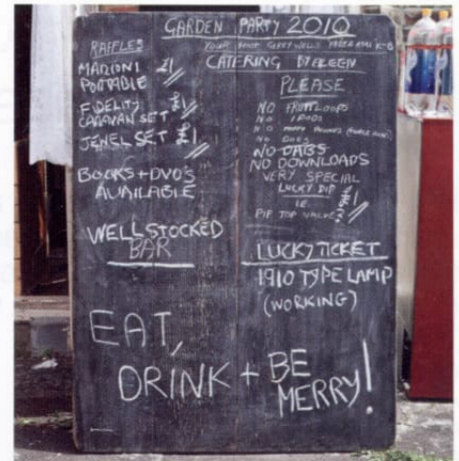 GARDEN PARTY 2010
YOUR HOST GERRY WELLS
CATERING BY EILEEN
RAFFLES
MARCONI £1
PORTABLE
FIDELITY £1
CARAVAN SET
JEWEL SET £1
BOOKS + DVD'S
AVAILABLE
WELL STOCKED
BAR
PLEASE
NO FRUITLOOPS
NO IPODS
NO
NO DOGS
NO DABS
NO DOWNLOADS
VERY SPECIAL
LUCKY DIP
I.E.
PIP TOP VALVE
LUCKY TICKET
1910 TYPE LAMP
(WORKING)
EAT,
DRINK + BE
MERRY!